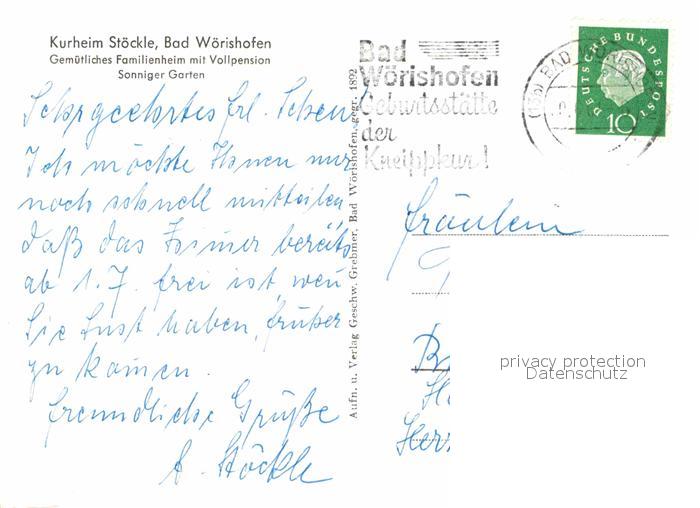 Kurheim Stöckle, Bad Wörishofen
Gemütliches Familienheim mit Vollpension
Sonniger Garten
Sehr geehrtes Frl.
Ich möchte Ihnen nur
noch schnell mitteilen
daß das Zimmer bereits
ab 1.7. frei ist, wen
Sie Lust haben, früher
zu kommen.
Freundliche Grüße
A. Stöckle
Aufn. u. Verlag Geschw. Grebmer, Bad Wörishofen, gegr. 1892
Bad
Wörishofen
Geburtsstätte
der
Kneippkur!
DEUTSCHE BUNDESPOST
10
Fräulein
privacy protection
Datenschutz